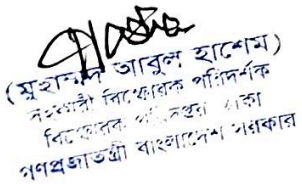 (মুহাম্মদ আবুল হাশেম)
সহকারী বিস্ফোরক পরিদর্শক
বিস্ফোরক পরিদপ্তর ঢাকা
গণপ্রজাতন্ত্রী বাংলাদেশ সরকার